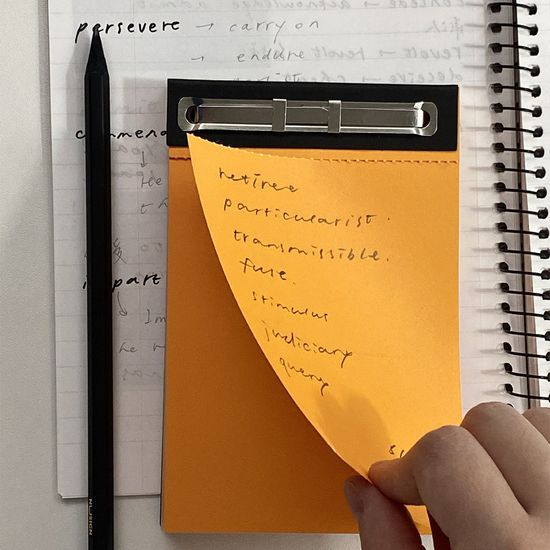 persevere → carry on
→ endure
commend
↓
He
th
後
impart
Im
he
retiree
particularist.
transmissible.
fuse.
stimulus
judiciary
query